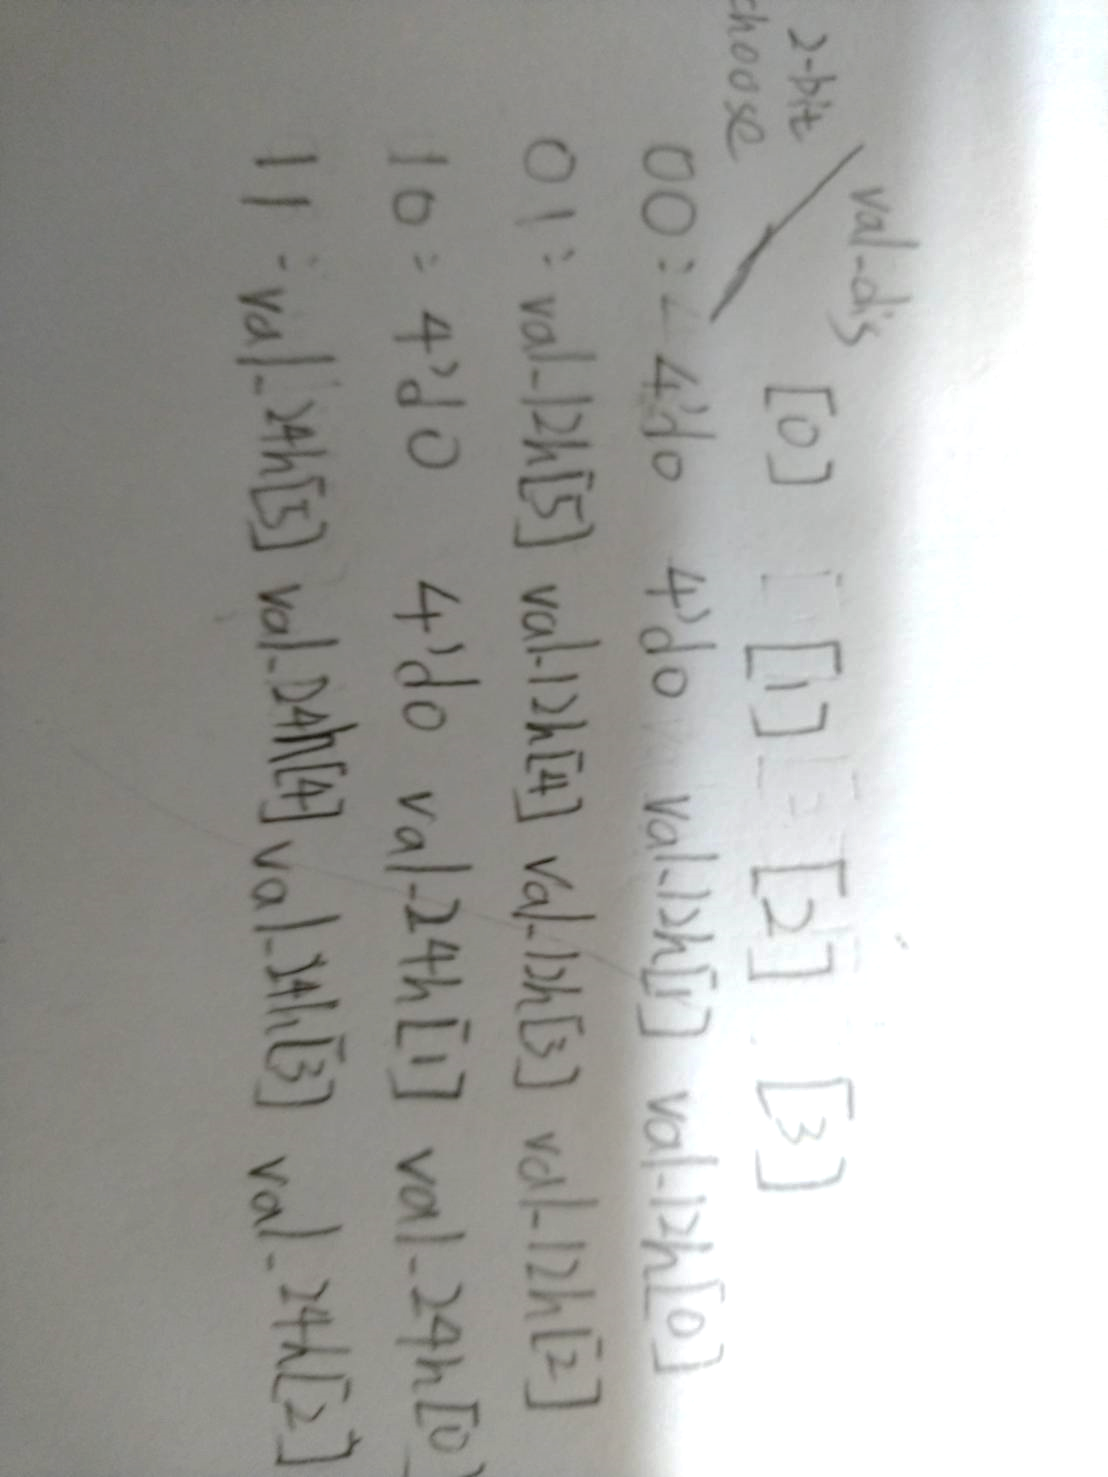 val_dis
2-bit choose [0] [1] [2] [3]
00: 4'd0 4'd0 val_12h[1] val_12h[0]
01: val_12h[5] val_12h[4] val_12h[3] val_12h[2]
10: 4'd0 4'd0 val_24h[1] val_24h[0]
11: val_24h[5] val_24h[4] val_24h[3] val_24h[2]